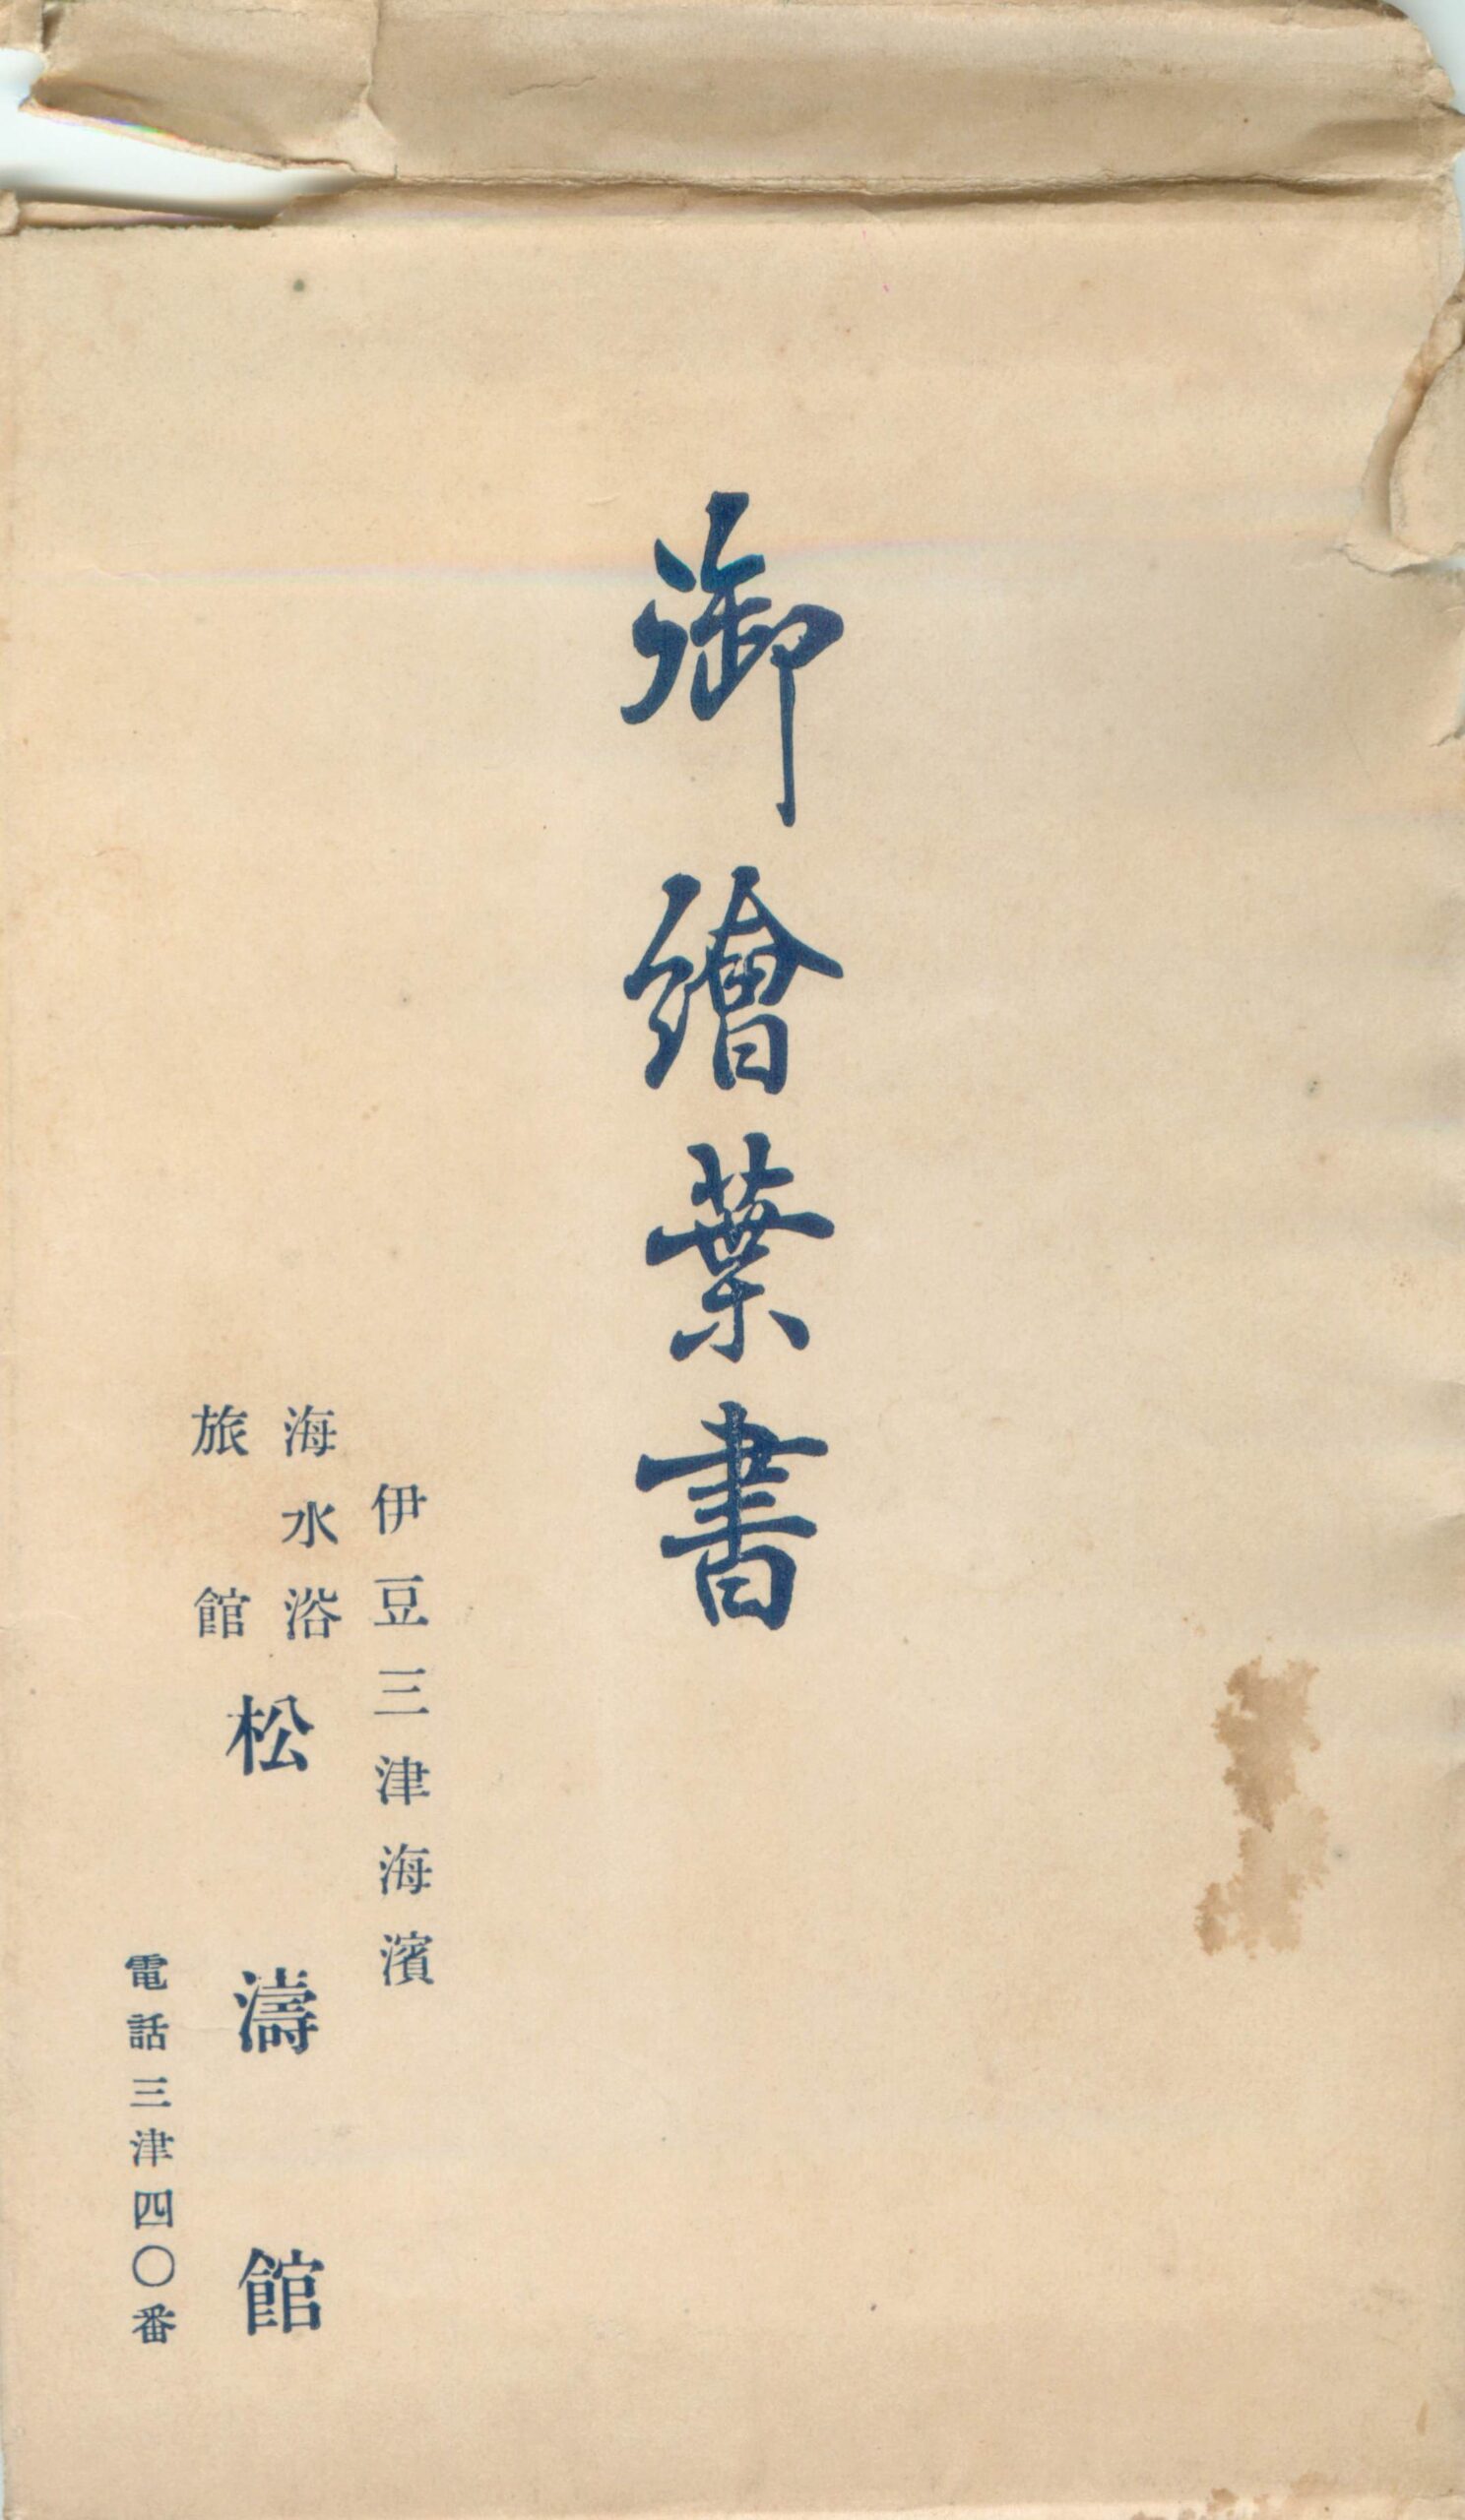 御繪葉書
伊豆三津海濱
海水浴
旅館
松濤館
電話三津四〇番